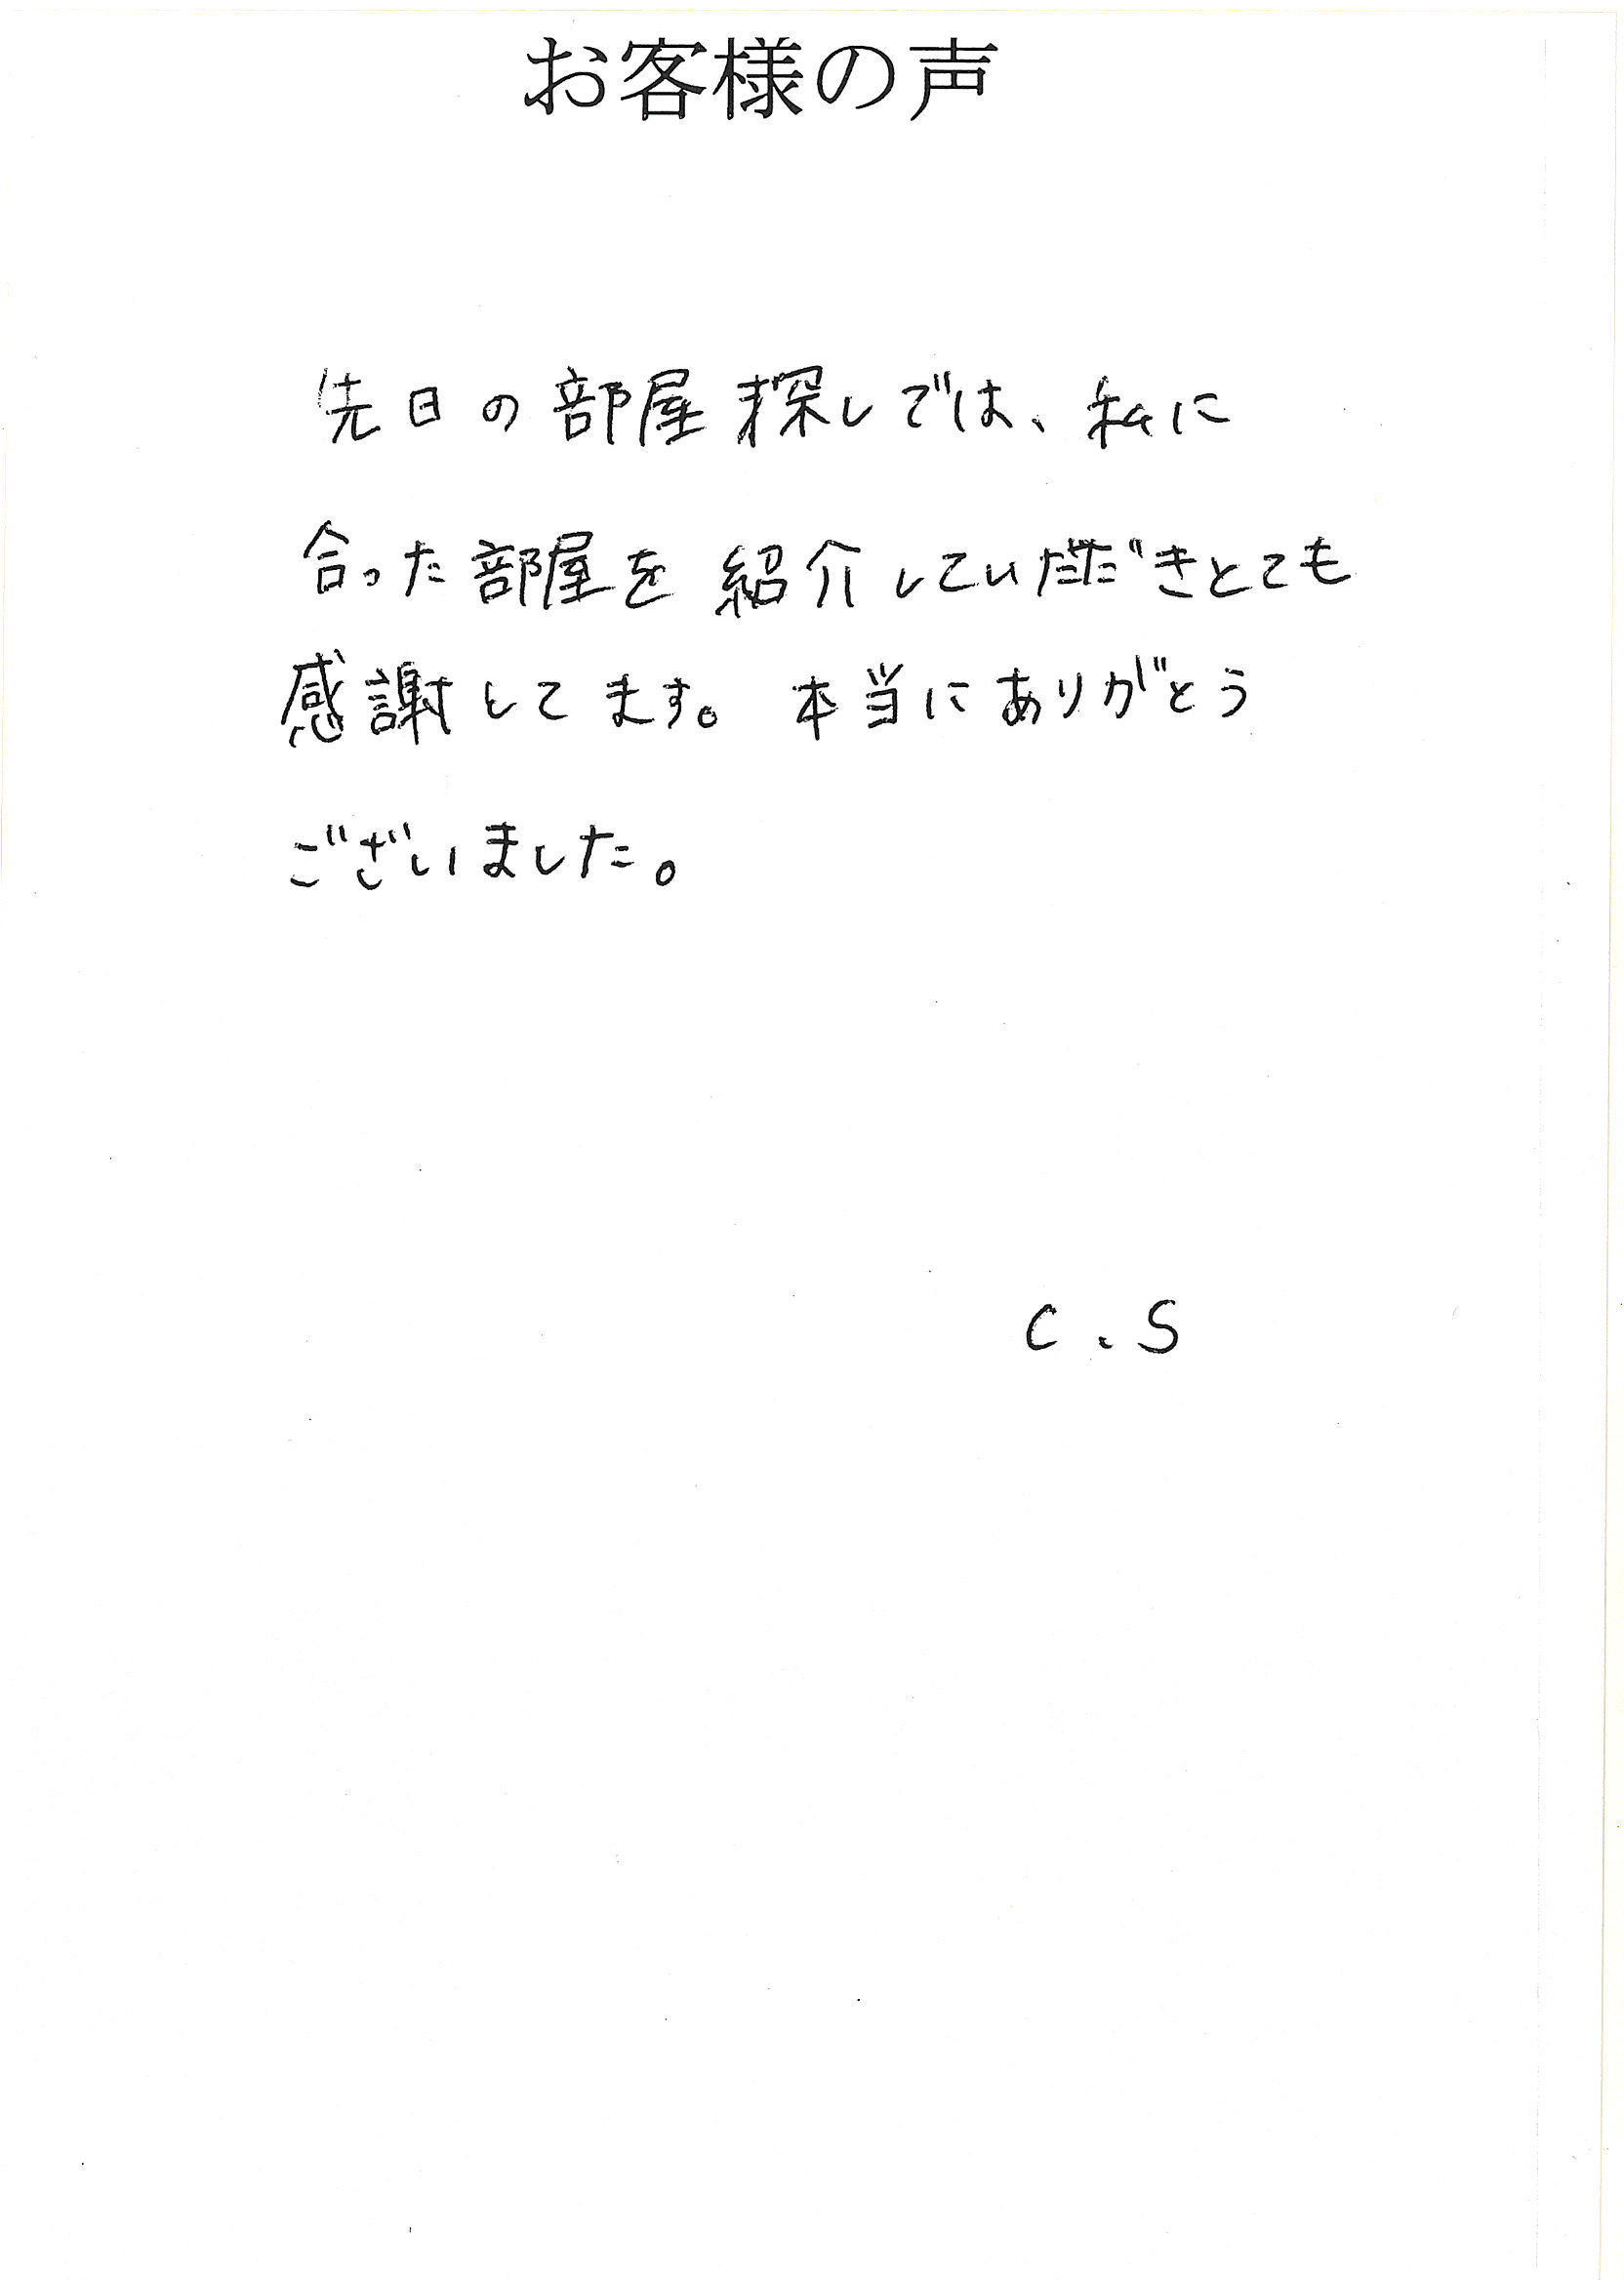 お客様の声
先日の部屋探しでは、私に
合った部屋を紹介していただきとても
感謝してます。本当にありがとう
ございました。
C.S